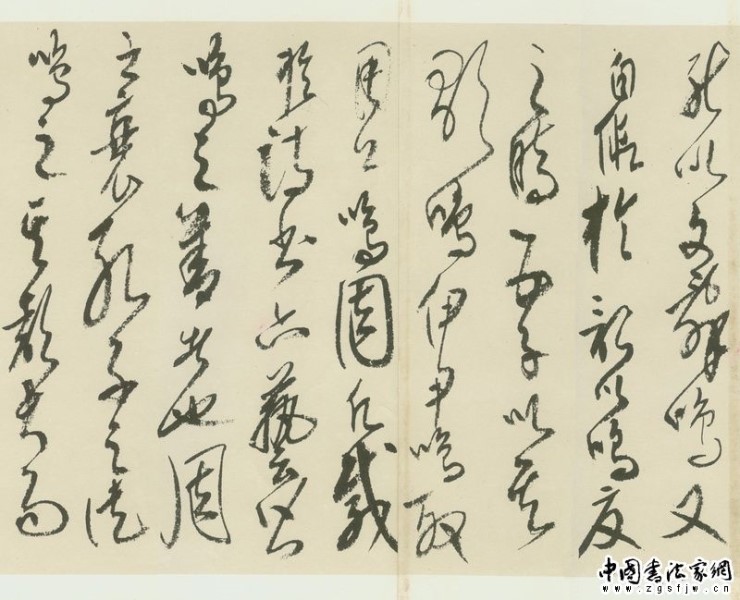 能以文辭鳴又
自假於韶以鳴夏
之時五子以其
歌鳴伊尹鳴殷
周公鳴周凡載
於詩書六藝皆
鳴之善者也周
之衰孔子之徒
鳴之其聲大而
中国书法家網
www.zgsfjw.cn